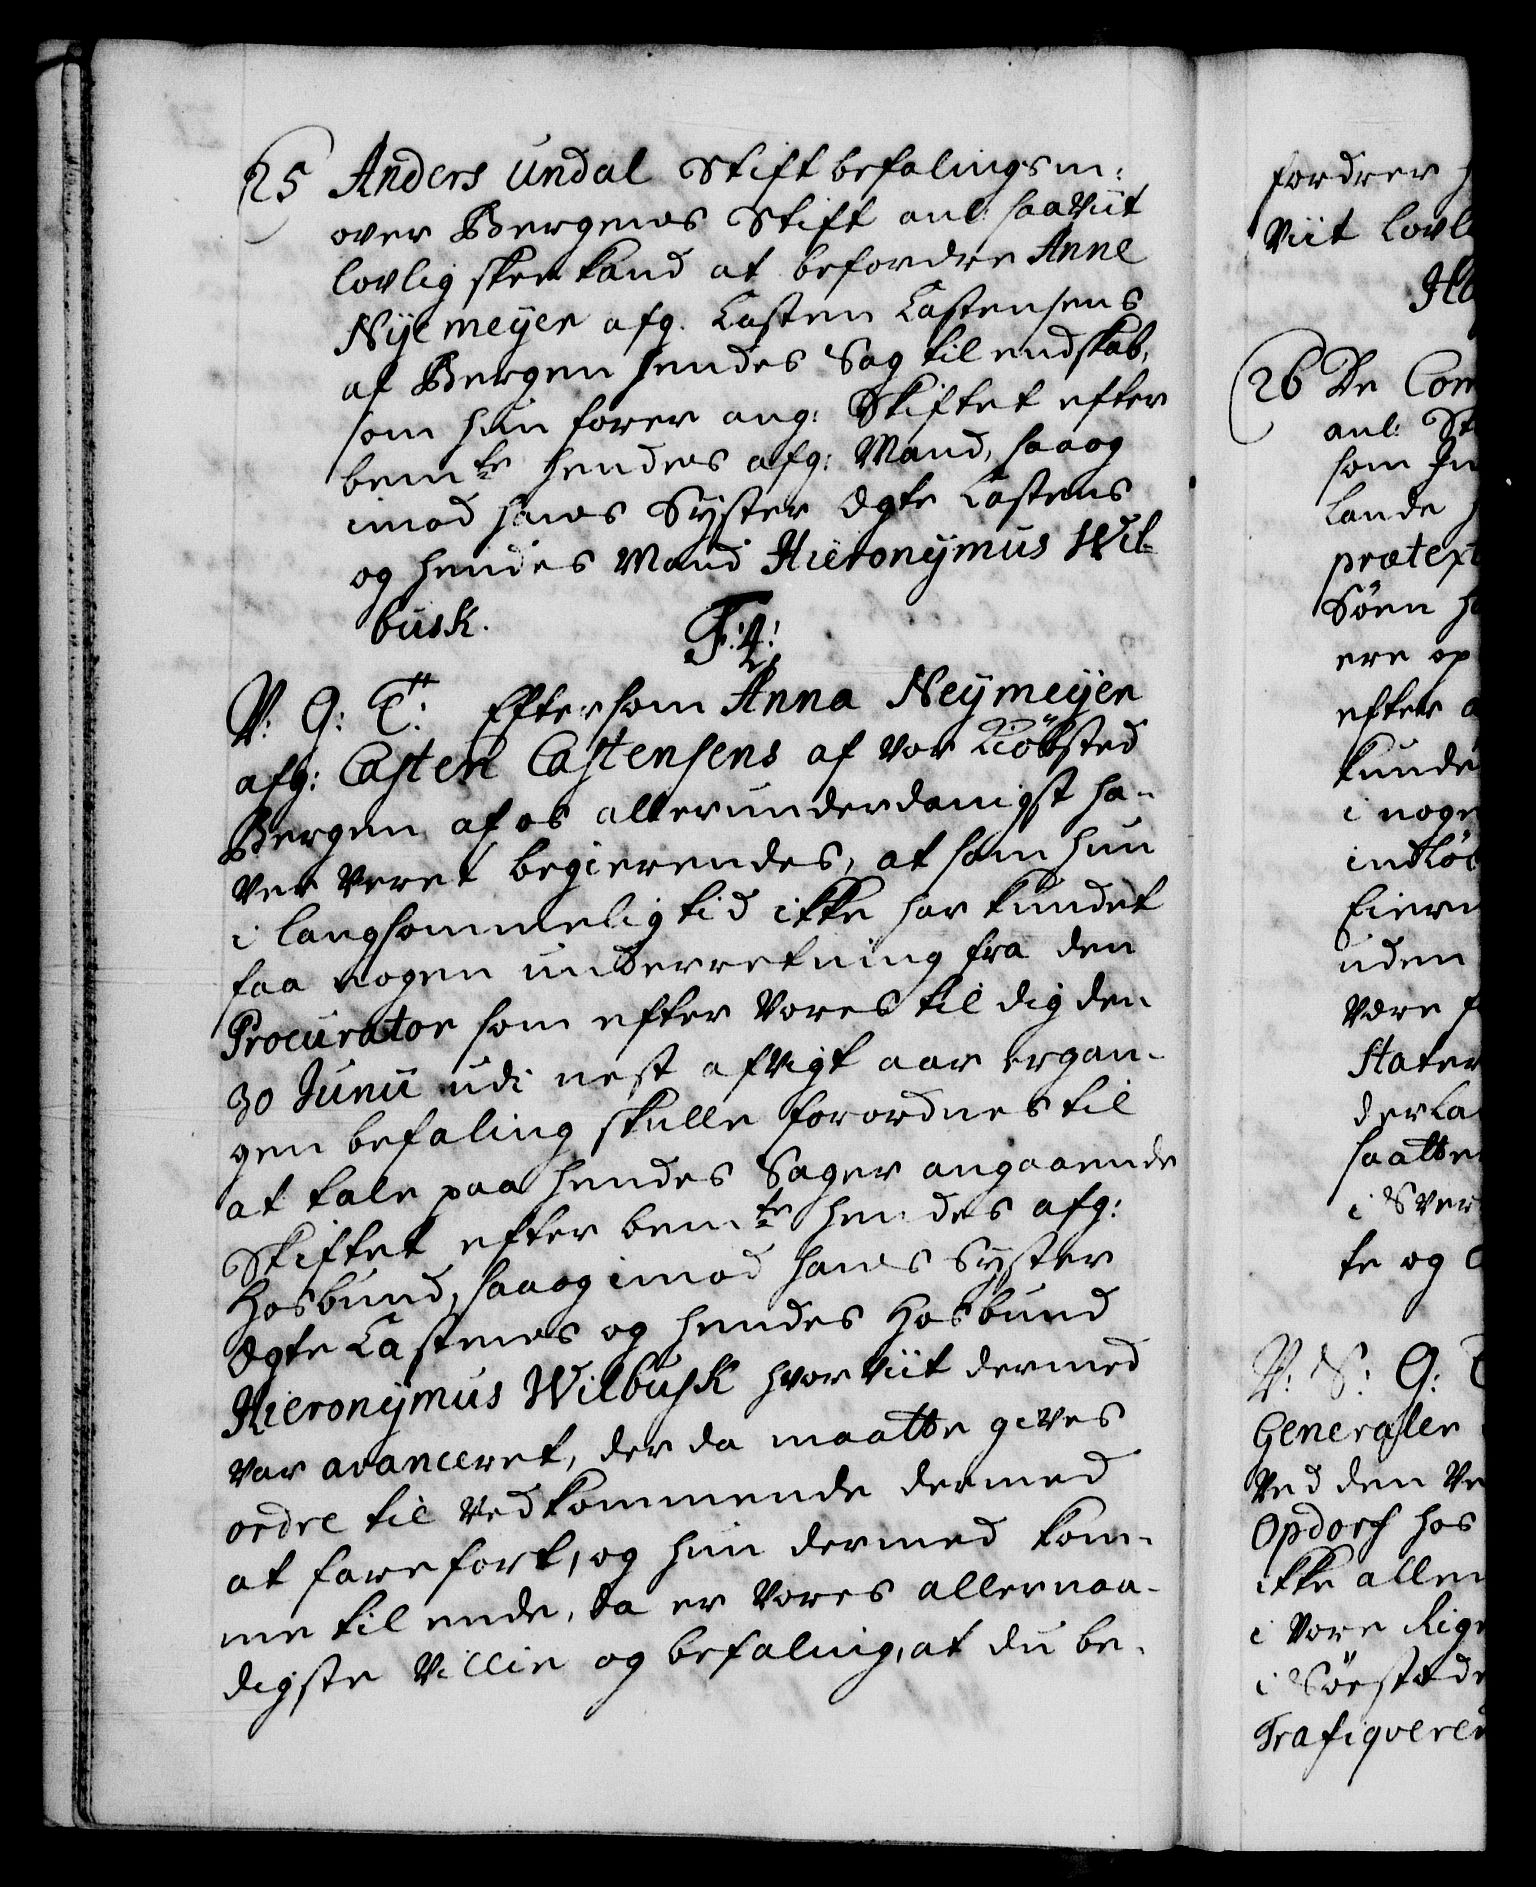 25 Anders Undal Stiftbefalingsm:
over Bergens Stift anl: saaviit
lovlig skee kand at befordre Anne
Nyemeyer afg. Casten Castensens
af Bergen hendes Sag til endskab,
som hun fører ang: Skiftet efter
bemte hendes afg: Mand, saa og
imod hans Syster Ægte Castens
og hendes Mand Hieronymus Wil-
busk.
F: 4:
V: G: T: Eftersom Anna Neymeyer
afg: Casten Castensens af vor Kiöbsted
Bergen af os allerunderdanigst ha-
ver veret begierendes, at som hun
i langsommelig tid ikke har kundet
faa nogen underretning fra den
Procurator som efter Vores til dig den
30 Junii udi nest afvigt aar ergan-
gen befaling skulle forordnes til
at tale paa hendes Sager angaaende
Skiftet efter bemte hendes afg:
Hosbund, saa og imod hans Syster
Ægte Castens og hendes Hosbund
Hieronymus Wilbusk hvor viit dermed
var avanceret, der da maatte gives
ordre til vedkommende dermed
at fare fort, og hun dermed kom-
me til ende, da er Vores allernaa-
digste Villie og befaling, at du be-
fordrer
Viit lovl
26 De Com
anl: St
som In
Lande
prætext
Söen h
ere op
efter
kunde
i noge
indkö
Eiern
uden
være f
Stater
derla
saatte
i Sver
te og
V: S: G:
Generaler
Ved den Ve
Opdorf hos
ikke aller
i Vore Rige
i Söestæde
Trafiqvered